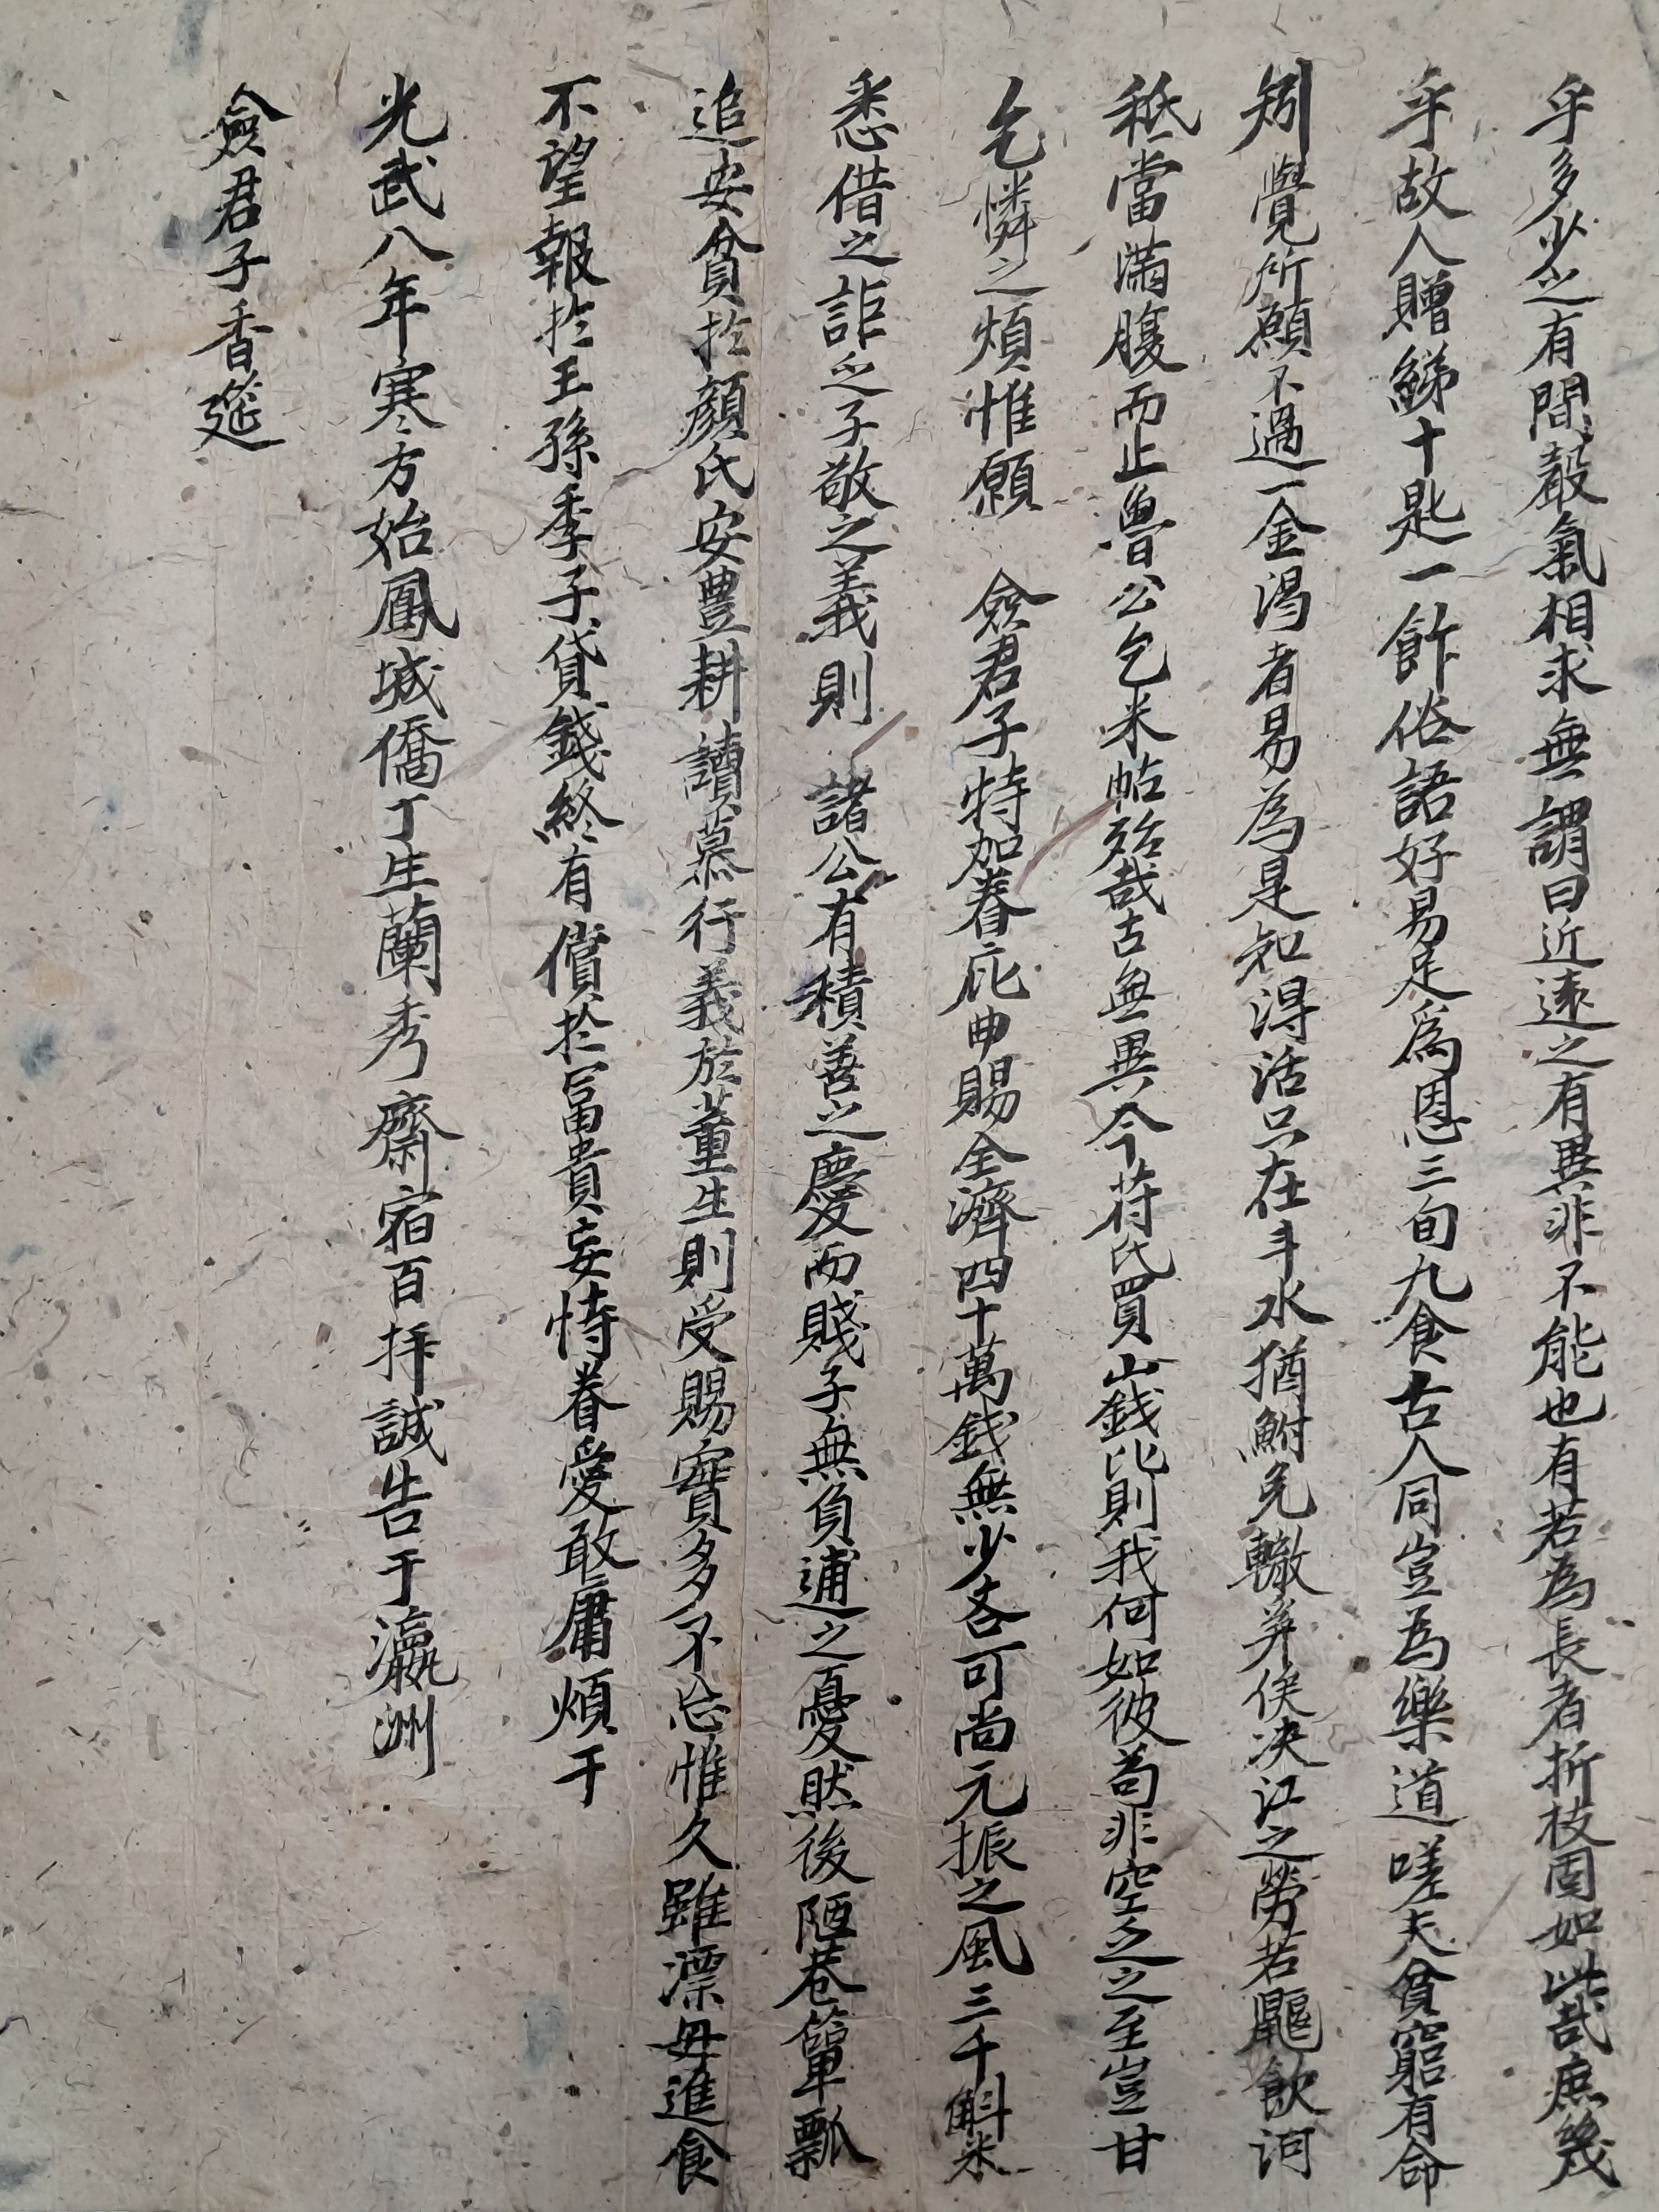 乎多少之有間聲氣相求無謂曰近遠之有異非不能也有若為長者折枝固如此哉庶幾
乎故人贈綈十匙一飯俗語好易足為恩三旬九食古人同豈為樂道嗟夫貧窮有命
矧覺所願不過一金渴者易為是知得活只在斗水猶鮒免轍并俟決江之勞若鼴飲河
秪當滿腹而止魯公乞米帖殆哉古無異今苻氏買山錢比則我何如彼苟非空乏之至豈甘
乞憐之煩惟願 僉君子特加眷庇曲賜全濟四十萬錢無少吝可尚元振之風三千斛米
悉借之詎乏子敬之義則 諸公有積善之慶而賤子無負逋之憂然後陋巷簞瓢
追安貧於顏氏安豊耕讀慕行義於董生則受賜實多不忘惟久雖漂母進食
不望報於王孫季子貸錢終有償於富貴妄恃眷愛敢庸煩干
光武八年寒方始鳳城僑丁生蘭秀齋宿百拜誠告于瀛洲
僉君子香筵